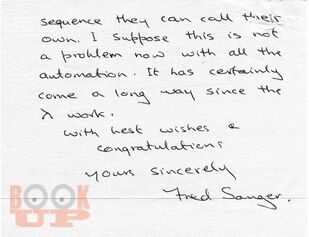 sequence they can call their
own. I suppose this is not
a problem now with all the
automation. It has certainly
come a long way since the
λ work.
With best wishes &
congratulations
Yours sincerely
Fred Sanger.
BOOK
UP